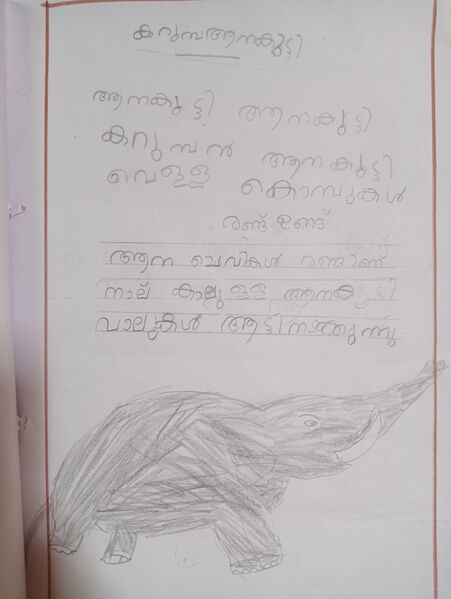 കറുമ്പആനകുട്ടി
ആനകുട്ടി ആനകുട്ടി
കറുമ്പൻ ആനകുട്ടി
വെളള കൊമ്പുകൾ
രണ്ട് ഉണ്ട്
ആന ചെവികൾ രണ്ടാണ്
നാല് കാലുളള ആനകുട്ടി
വാലുകൾ ആട്ടിനടക്കുന്നു